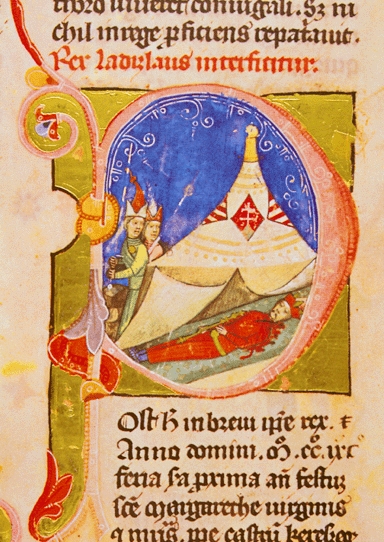 thoro iuueret coniugali. Sz ni
chil in rege ꝑficiens repatauit.
Rex ladizlaus interficitur.
Ost h̄ in breui ip̄e rex. ⁊
Anno domini. M̊. cc̊. lxc
feria sa prima an̄ festuȝ
sc̄e margarethe uirginis
castrū kerezeez